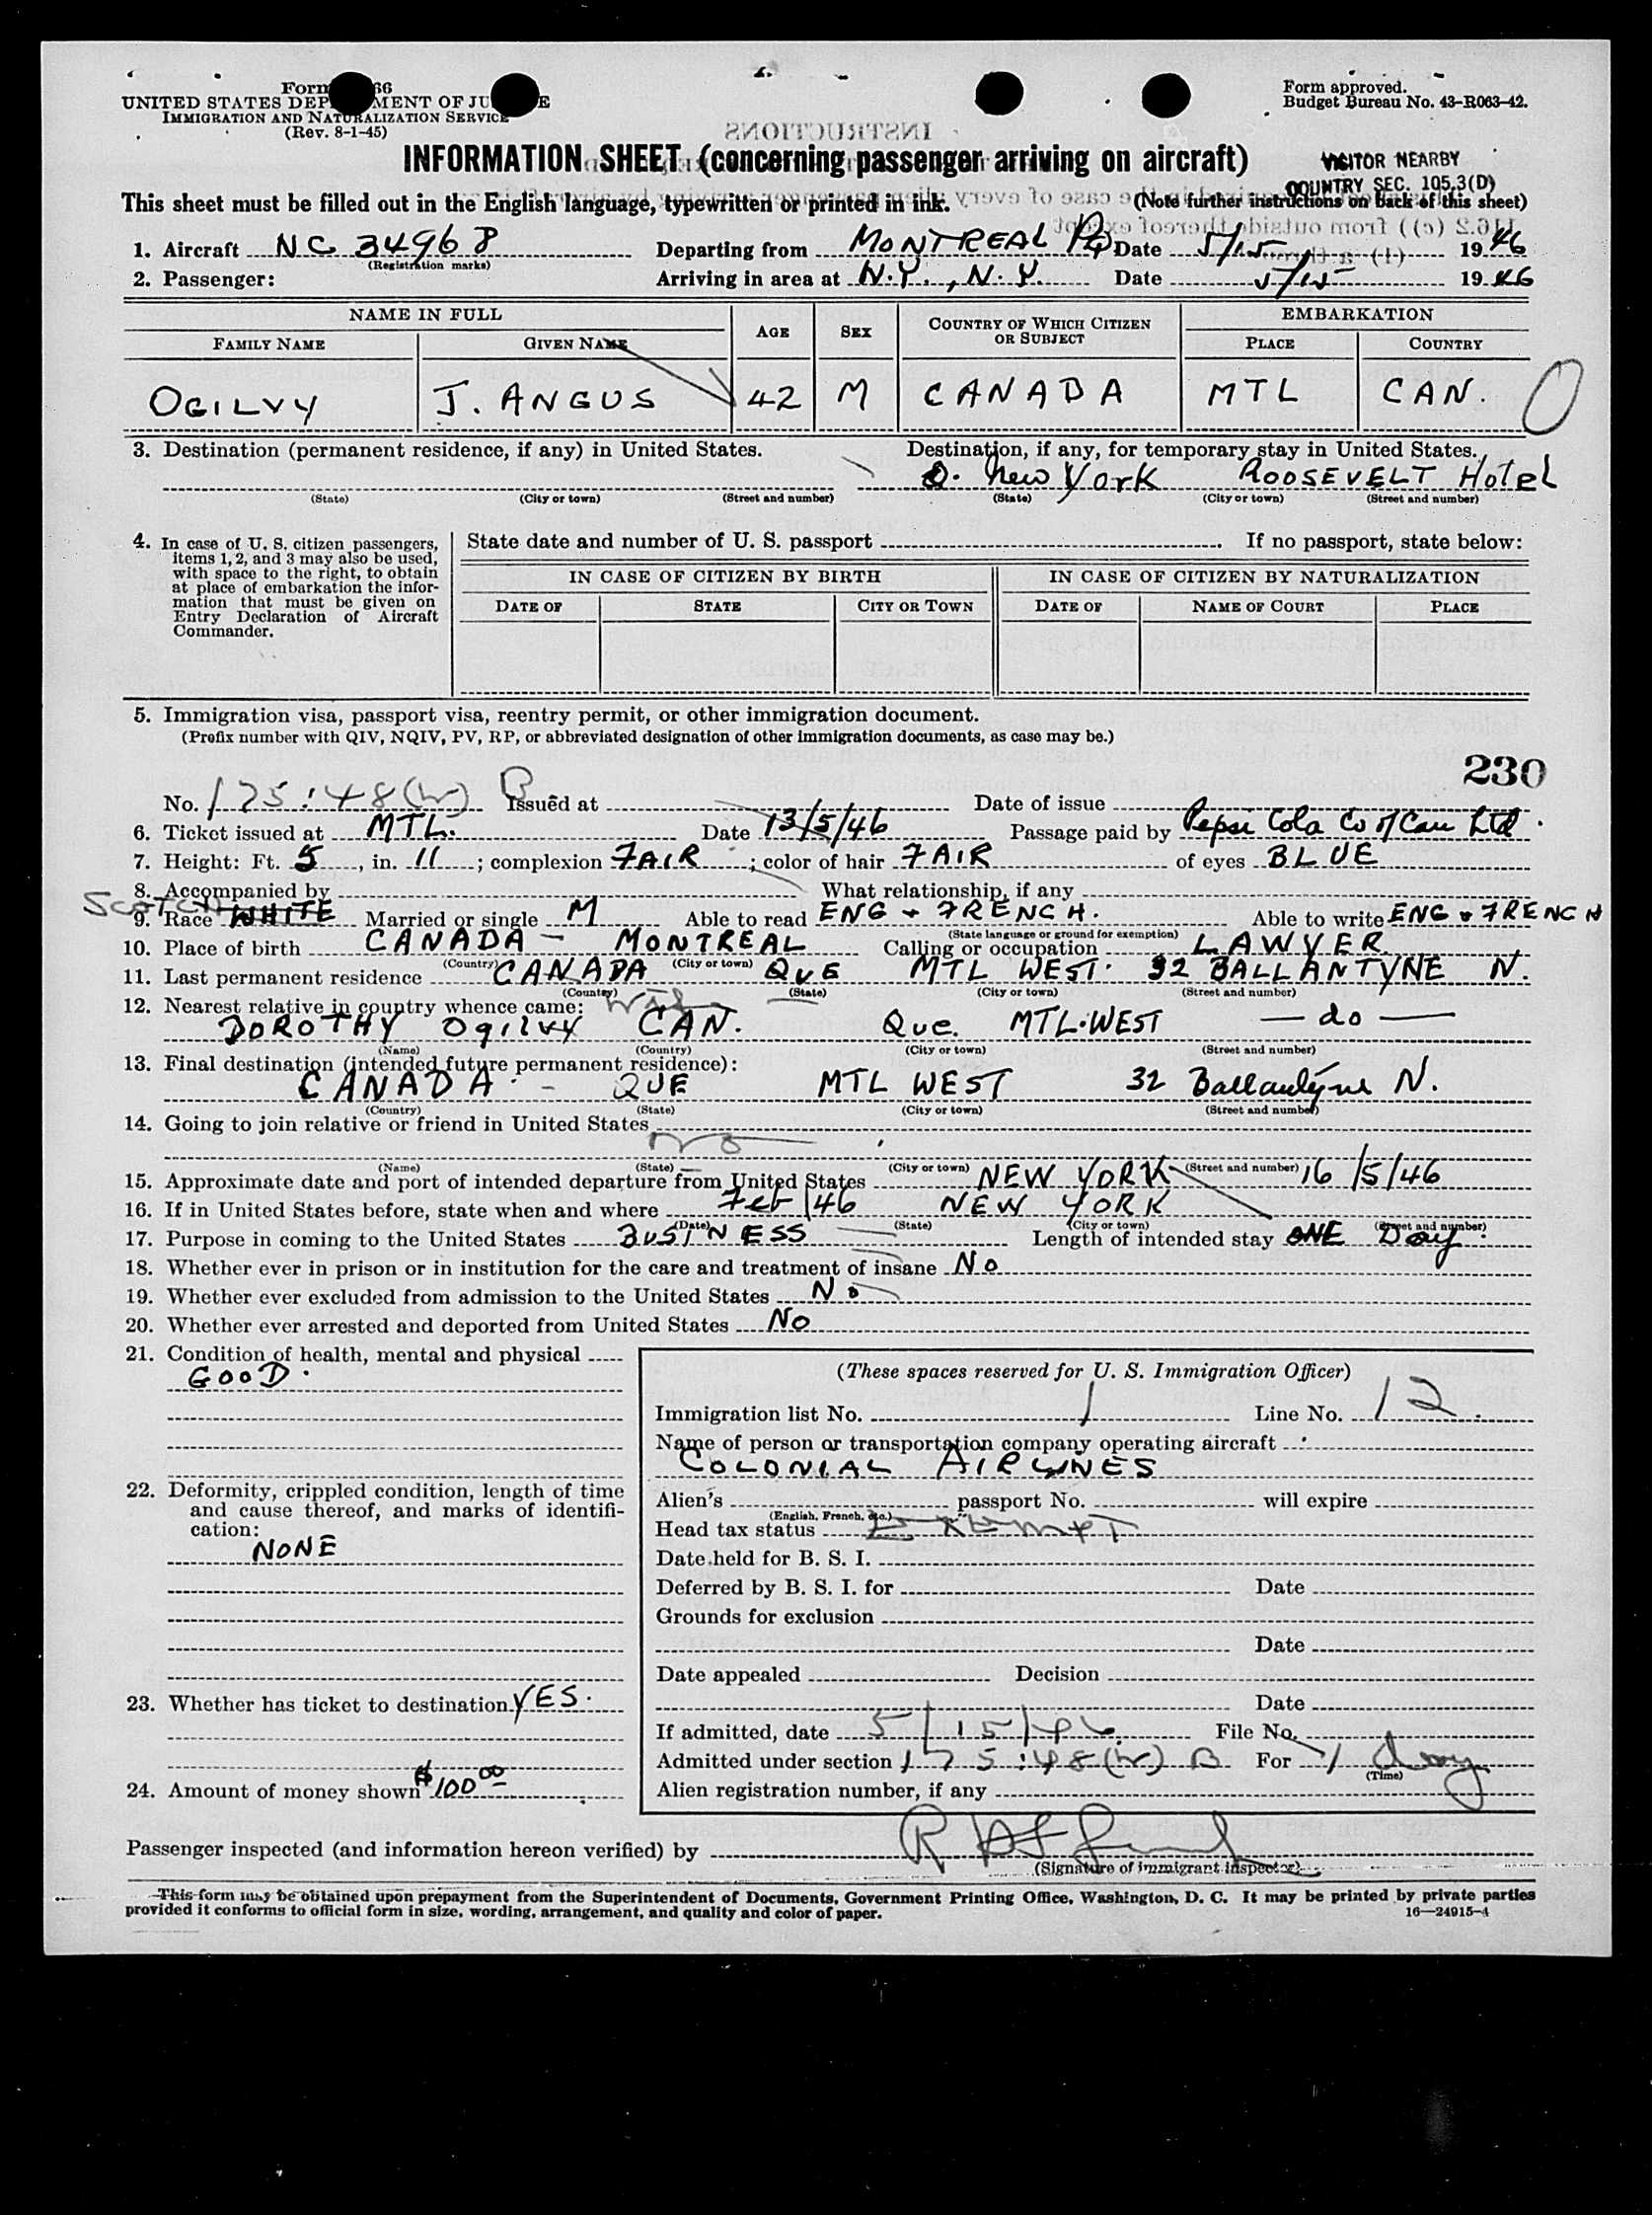 Form 66
UNITED STATES DEP MENT OF JU E
IMMIGRATION AND NATURALIZATION SERVICE
(Rev. 8-1-45)
Form approved.
Budget Bureau No. 43-R063-42.
INSTRUCTIONS
INFORMATION SHEET (concerning passenger arriving on aircraft)
VISITOR NEARBY
COUNTRY SEC. 105.3(D)
This sheet must be filled out in the English language, typewritten or printed in ink. (Note further instructions on back of this sheet)
1. Aircraft NC 34968 Departing from MONTREAL PQ Date 5/15 1946
(Registration marks)
2. Passenger: Arriving in area at N.Y., N.Y. Date 5/15 1946
NAME IN FULL AGE SEX COUNTRY OF WHICH CITIZEN OR SUBJECT EMBARKATION
FAMILY NAME GIVEN NAME PLACE COUNTRY
OGILVY J. ANGUS 42 M CANADA MTL CAN. O
3. Destination (permanent residence, if any) in United States. Destination, if any, for temporary stay in United States.
New York ROOSEVELT Hotel
(State) (City or town) (Street and number) (State) (City or town) (Street and number)
4. In case of U. S. citizen passengers, items 1, 2, and 3 may also be used, with space to the right, to obtain at place of embarkation the information that must be given on Entry Declaration of Aircraft Commander.
State date and number of U. S. passport . If no passport, state below:
IN CASE OF CITIZEN BY BIRTH IN CASE OF CITIZEN BY NATURALIZATION
DATE OF STATE CITY OR TOWN DATE OF NAME OF COURT PLACE
5. Immigration visa, passport visa, reentry permit, or other immigration document.
(Prefix number with QIV, NQIV, PV, RP, or abbreviated designation of other immigration documents, as case may be.)
230
No. 175:48(w) B Issued at Date of issue
6. Ticket issued at MTL. Date 13/5/46 Passage paid by Pepsi Cola Co of Can Ltd.
7. Height: Ft. 5, in. 11; complexion FAIR; color of hair FAIR of eyes BLUE
8. Accompanied by What relationship, if any
SCOTCH
9. Race WHITE Married or single M Able to read ENG + FRENCH. Able to write ENG + FRENCH
(State language or ground for exemption)
10. Place of birth CANADA - MONTREAL Calling or occupation LAWYER
(Country) (City or town)
11. Last permanent residence CANADA QUE MTL WEST. 32 BALLANTYNE N.
(Country) (State) (City or town) (Street and number)
12. Nearest relative in country whence came: Wife
DOROTHY Ogilvy CAN. Que. MTL. WEST — do —
(Name) (Country) (City or town) (Street and number)
13. Final destination (intended future permanent residence):
CANADA - QUE MTL WEST 32 Ballantyne N.
(Country) (State) (City or town) (Street and number)
14. Going to join relative or friend in United States
No
(Name) (State) (City or town) (Street and number)
15. Approximate date and port of intended departure from United States NEW YORK 16/5/46
16. If in United States before, state when and where Feb/46 NEW YORK
(Date) (State) (City or town) (Street and number)
17. Purpose in coming to the United States BUSINESS Length of intended stay ONE Day.
18. Whether ever in prison or in institution for the care and treatment of insane No
19. Whether ever excluded from admission to the United States No
20. Whether ever arrested and deported from United States No
21. Condition of health, mental and physical
GOOD.
22. Deformity, crippled condition, length of time and cause thereof, and marks of identification:
NONE
23. Whether has ticket to destination YES.
24. Amount of money shown $100 00
(These spaces reserved for U. S. Immigration Officer)
Immigration list No. 1 Line No. 12
Name of person or transportation company operating aircraft
COLONIAL AIRLINES
Alien's passport No. will expire
(English, French, etc.)
Head tax status Exempt
Date held for B. S. I.
Deferred by B. S. I. for Date
Grounds for exclusion
Date
Date appealed Decision
Date
If admitted, date 5/15/46 File No.
Admitted under section 175:48(w) B For 1 day
(Time)
Alien registration number, if any
Passenger inspected (and information hereon verified) by
(Signature of immigrant inspector)
This form may be obtained upon prepayment from the Superintendent of Documents, Government Printing Office, Washington, D. C. It may be printed by private parties
provided it conforms to official form in size, wording, arrangement, and quality and color of paper.
16—24915-4